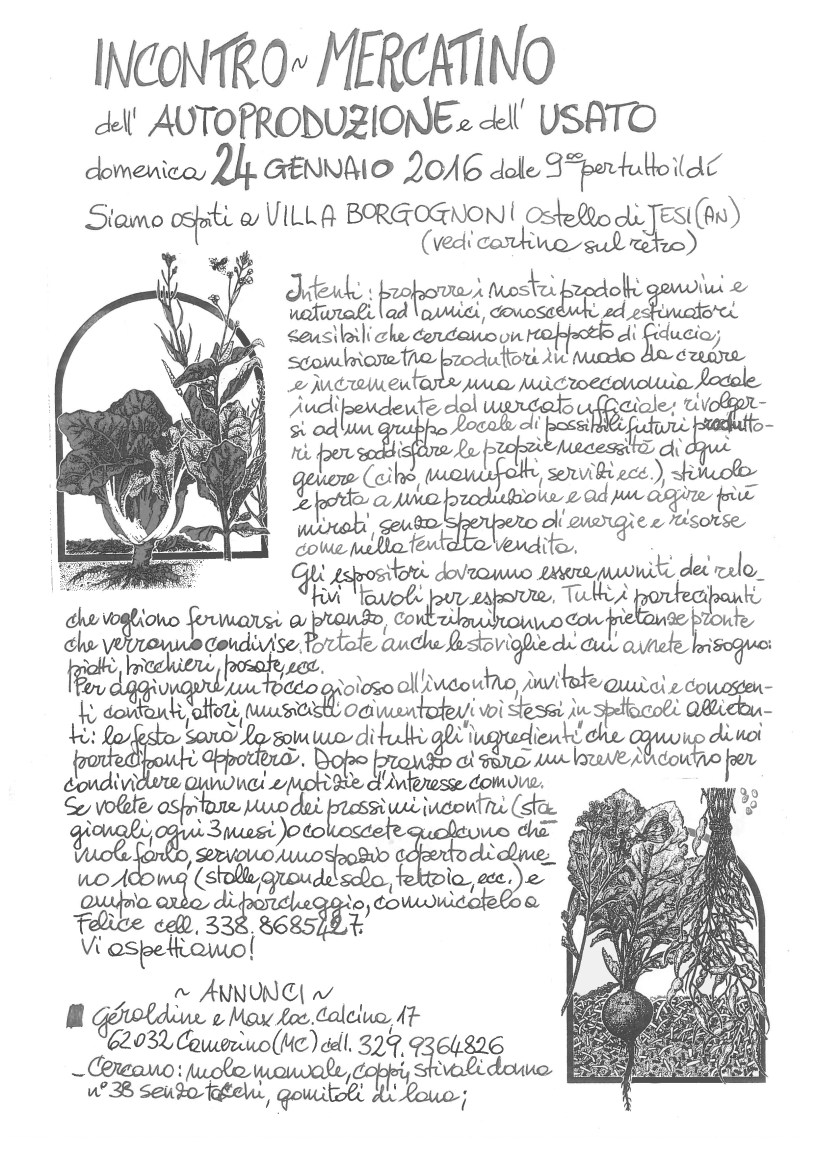 INCONTRO ~ MERCATINO
dell' AUTOPRODUZIONE e dell' USATO
domenica 24 GENNAIO 2016 dalle 9°° per tutto il dí
Siamo ospiti a VILLA BORGOGNONI ostello di JESI (AN)
(vedi cartina sul rètro)
Intenti: proporre i nostri prodotti genuini e
naturali ad amici, conoscenti ed estimatori
sensibili che cercano un rapporto di fiducia;
scambiare tra produttori in modo da creare
e incrementare una microeconomia locale
indipendente dal mercato ufficiale; rivolger-
si ad un gruppo locale di possibili futuri produtto-
ri per soddisfare le proprie necessità di ogni
genere (cibo, manufatti, servizi ecc.), stimola
e porta a una produzione e ad un agire più
mirati, senza sperpero di energie e risorse
come nella tentata vendita.
Gli espositori dovranno essere muniti dei rela-
tivi tavoli per esporre. Tutti i partecipanti
che vogliono fermarsi a pranzo, contribuiranno con pietanze pronte
che verranno condivise. Portate anche le stoviglie di cui avrete bisogno:
piatti, bicchieri, posate, ecc.
Per aggiungere un tocco gioioso all'incontro, invitate amici e conoscen-
ti cantanti, attori, musicisti o cimentatevi voi stessi in spettacoli allietan-
ti: la festa sarà la somma di tutti gli "ingredienti" che ognuno di noi
partecipanti apporterà. Dopo pranzo ci sarà un breve incontro per
condividere annunci e notizie d'interesse comune.
Se volete ospitare uno dei prossimi incontri (sta-
gionali, ogni 3 mesi) o conoscete qualcuno che
vuole farlo, servono uno spazio coperto di alme-
no 100 mq (stalla, grande sala, tettoia, ecc.) e
ampia area di parcheggio, comunicatelo a
Felice cell. 338.8685427.
Vi aspettiamo!
~ ANNUNCI ~
Géraldine e Max loc. Calcina, 17
62032 Camerino (MC) cell. 329.9364826
- Cercano: mola manuale, coppi, stivali donna
n° 38 senza tacchi, gomitoli di lana;